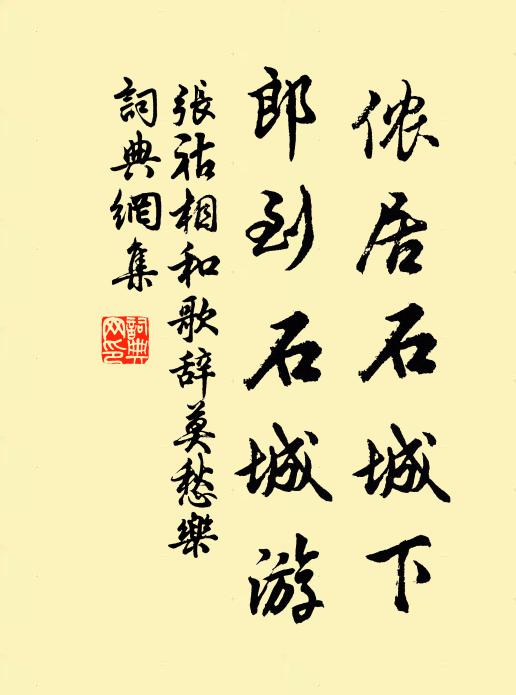 侬居石城下
郎到石城游
張祜相和歌辞莫愁樂
詞典網集
詞典
网印